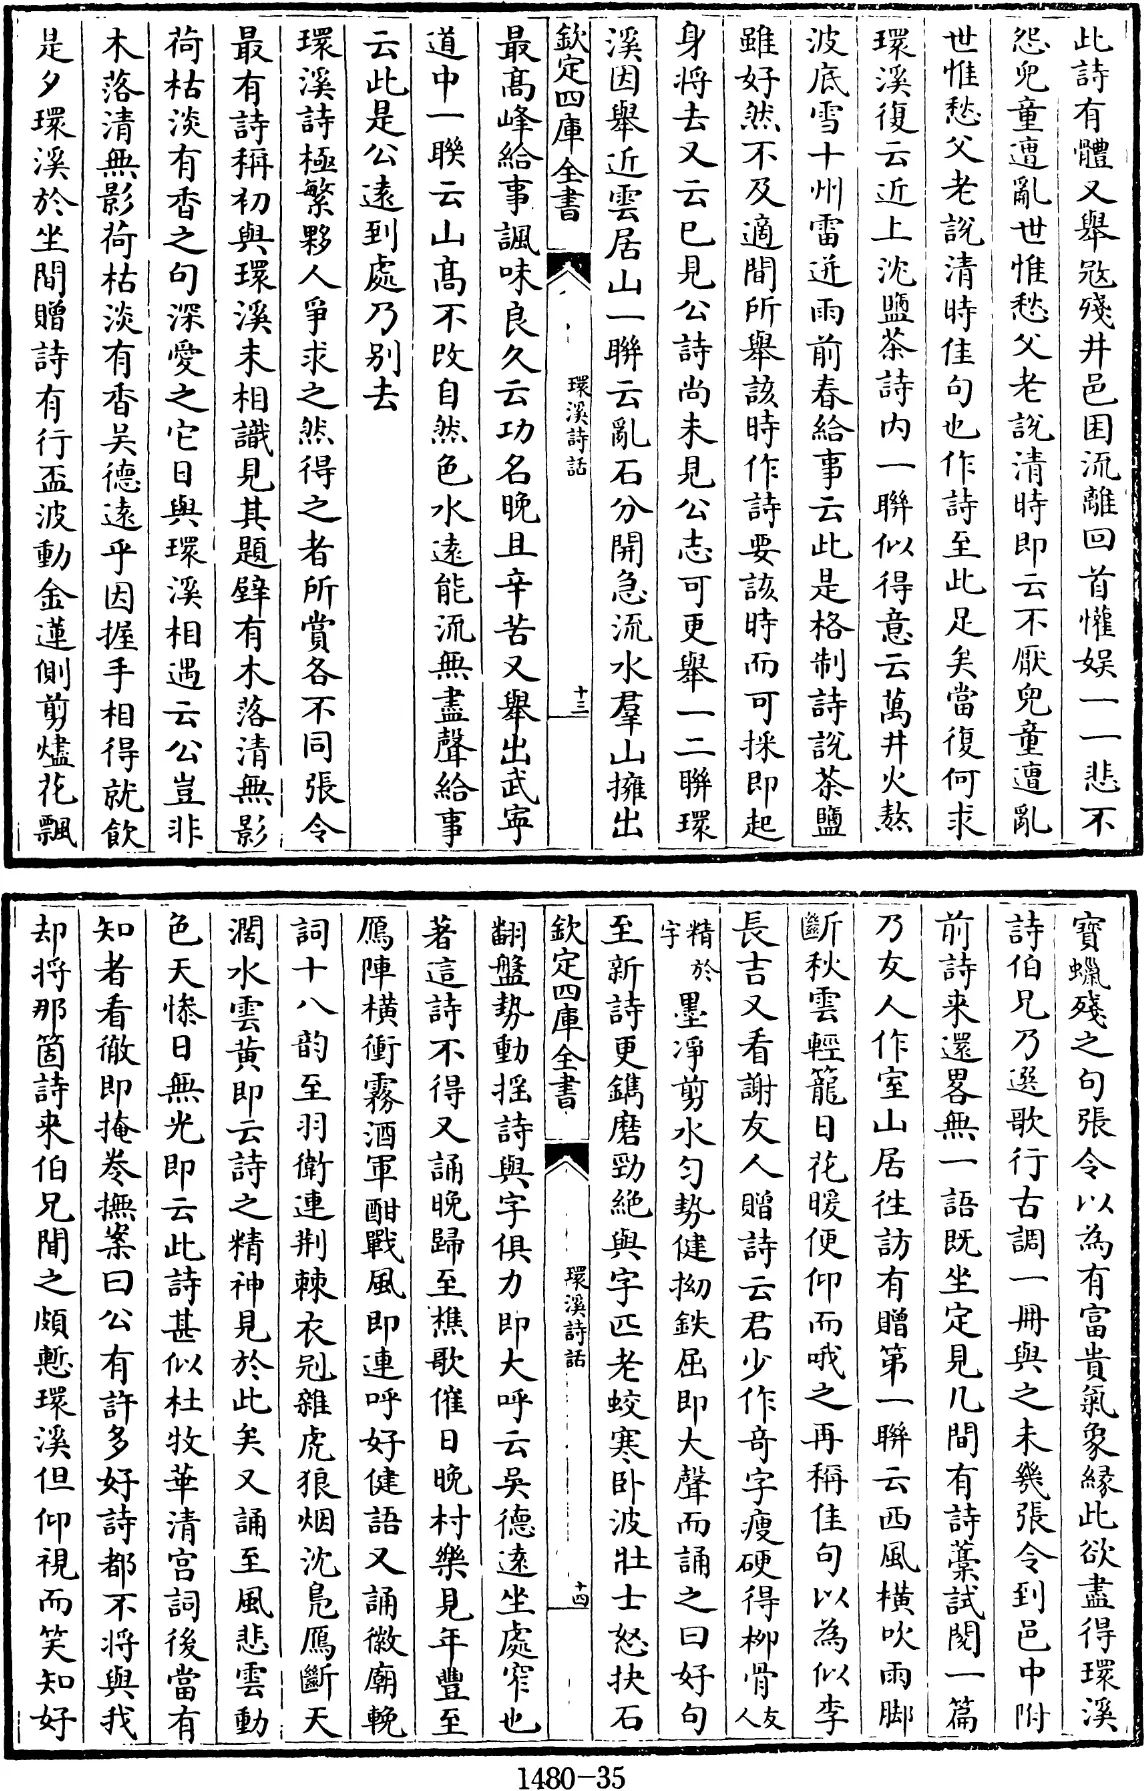 此詩有體又舉㓂殘井邑困流離回首懽娱一一悲不
怨兒童遭亂世惟愁父老説清時即云不厭兒童遭亂
世惟愁父老説清時佳句也作詩至此足矣當復何求
環溪復云近上沈鹽茶詩内一聨似得意云萬井火熬
波底雪十州雷迸雨前春給事云此是格制詩説茶鹽
雖好然不及適間所舉該時作詩要該時而可採即起
身将去又云已見公詩尚未見公志可更舉一二聨環
溪因舉近雲居山一聨云亂石分開急流水羣山擁出
欽定四庫全書
環溪詩話
十三
最髙峰給事諷味良久云功名晚且辛苦又舉出武寧
道中一聨云山髙不改自然色水遠能流無盡聲給事
云此是公遠到處乃别去
環溪詩極繁夥人爭求之然得之者所賞各不同張令
最有詩稱初與環溪未相識見其題壁有木落清無影
荷枯淡有香之句深愛之它日與環溪相遇云公豈非
木落清無影荷枯淡有香吴德逺乎因握手相得就飲
是夕環溪於坐間贈詩有行盃波動金蓮側剪燼花飄
寶蠟殘之句張令以為有富貴氣象縁此欲盡得環溪
詩伯兄乃選歌行古調一册與之未幾張令到邑中附
前詩来還畧無一語既坐定見几間有詩藁試閲一篇
乃友人作室山居徃訪有贈第一聨云西風横吹雨脚
斷秋雲輕籠日花暖便仰而哦之再稱佳句以為似李
長吉又看謝友人贈詩云君少作竒字瘦硬得柳骨友人
精於字墨凈剪水匀勢健拗鉄屈即大聲而誦之曰好句
至新詩更鐫磨勁絶與字匹老蛟寒卧波壯士怒抉石
欽定四庫全書
環溪詩話
十四
翻盤勢動揺詩與字俱力即大呼云吴德逺坐處窄也
著這詩不得又誦晚歸至樵歌催日晚村樂見年豐至
鴈陣横衝霧酒軍酣戰風即連呼好健語又誦徽廟輓
詞十八韵至羽衛連荆棘衣冠雜虎狼烟沈鳬鴈斷天
濶水雲黄即云詩之精神見於此矣又誦至風悲雲動
色天惨日無光即云此詩甚似杜牧華清宫詞後當有
知者看徹即掩卷撫案曰公有許多好詩都不将與我
却将那箇詩来伯兄聞之頗慙環溪但仰視而笑知好
1480-35